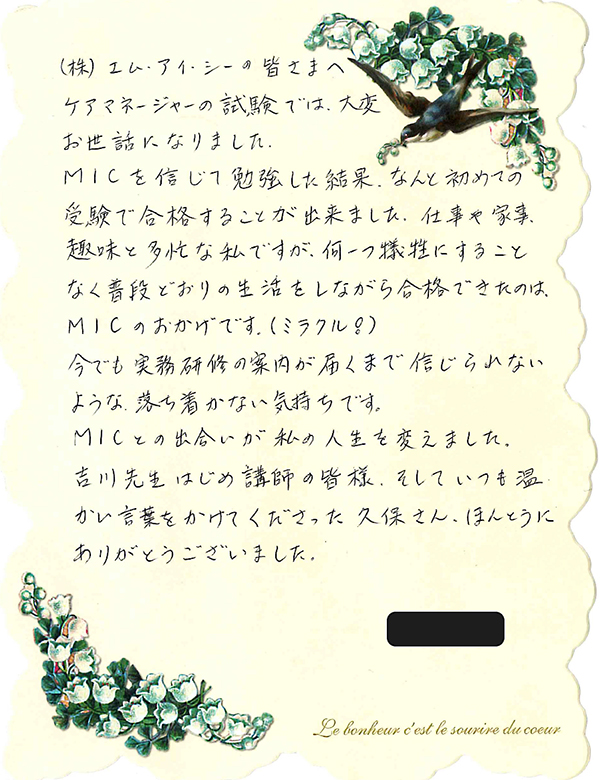 (株) エム・アイ・シーの皆さまへ
ケアマネージャーの試験では、大変
お世話になりました.
MICを信じて勉強した結果、なんと初めての
受験で合格することが出来ました. 仕事や家事、
趣味と多忙な私ですが、何一つ犠牲にすること
なく普段どおりの生活をしながら合格できたのは、
MICのおかげです.(ミラクル!)
今でも実務研修の案内が届くまで信じられない
ような、落ち着かない気持ちです。
MICとの出合いが私の人生を変えました.
吉川先生はじめ講師の皆様、そしていつも温
かい言葉をかけてくださった久保さん、ほんとうに
ありがとうございました.
Le bonheur c'est le sourire du coeur